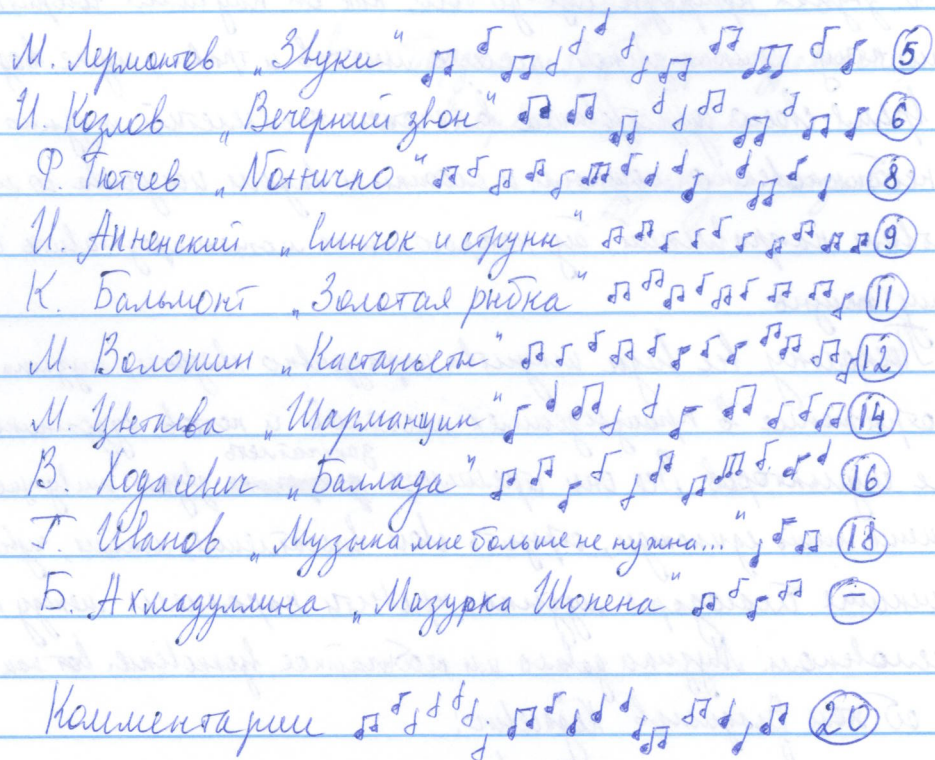 М. Лермонтов „Звуки" 5
И. Козлов „Вечерний звон" 6
Ф. Тютчев 8
И. Анненский „Смычок и струны" 9
К. Бальмонт „Золотая рыбка" 11
М. Волошин „Кастаньеты" 12
М. Цветаева „Шарманщик" 14
В. Ходасевич „Баллада" 16
Г. Иванов „Музыка мне больше не нужна..." 18
Б. Ахмадуллина „Мазурка Шопена" –
Комментарии 20